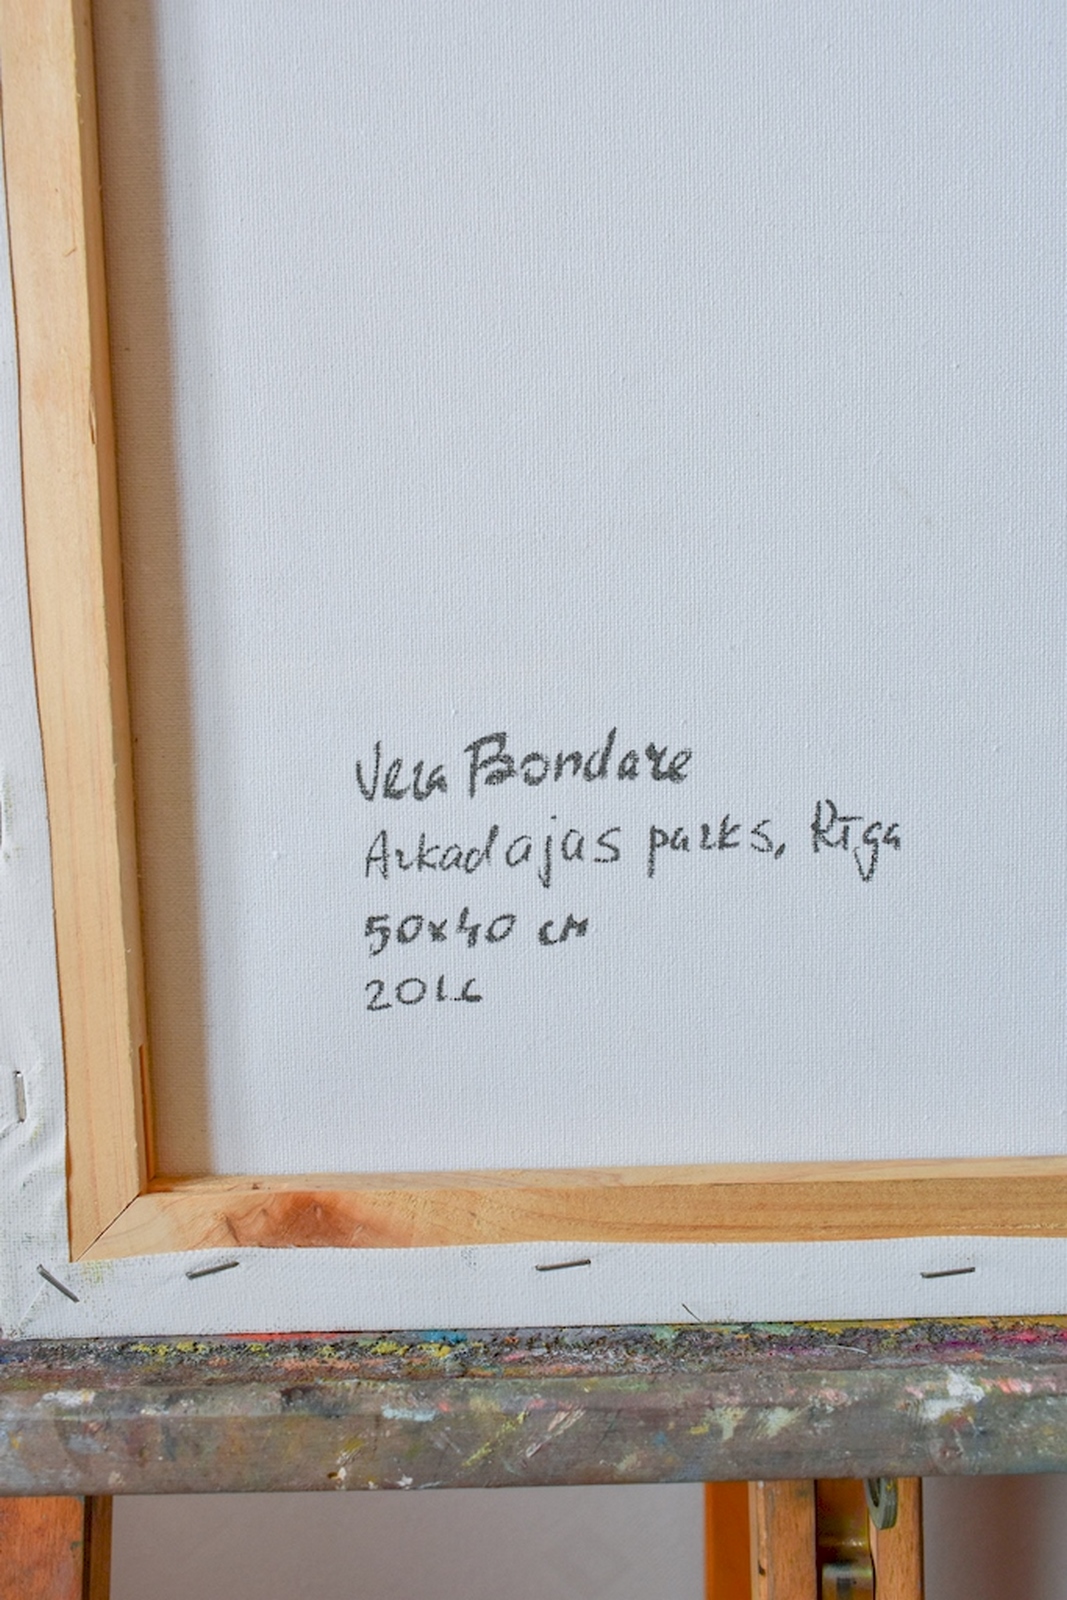 Vera Bondare
Arkadajas parks, Rīga
50x40 cm
2016